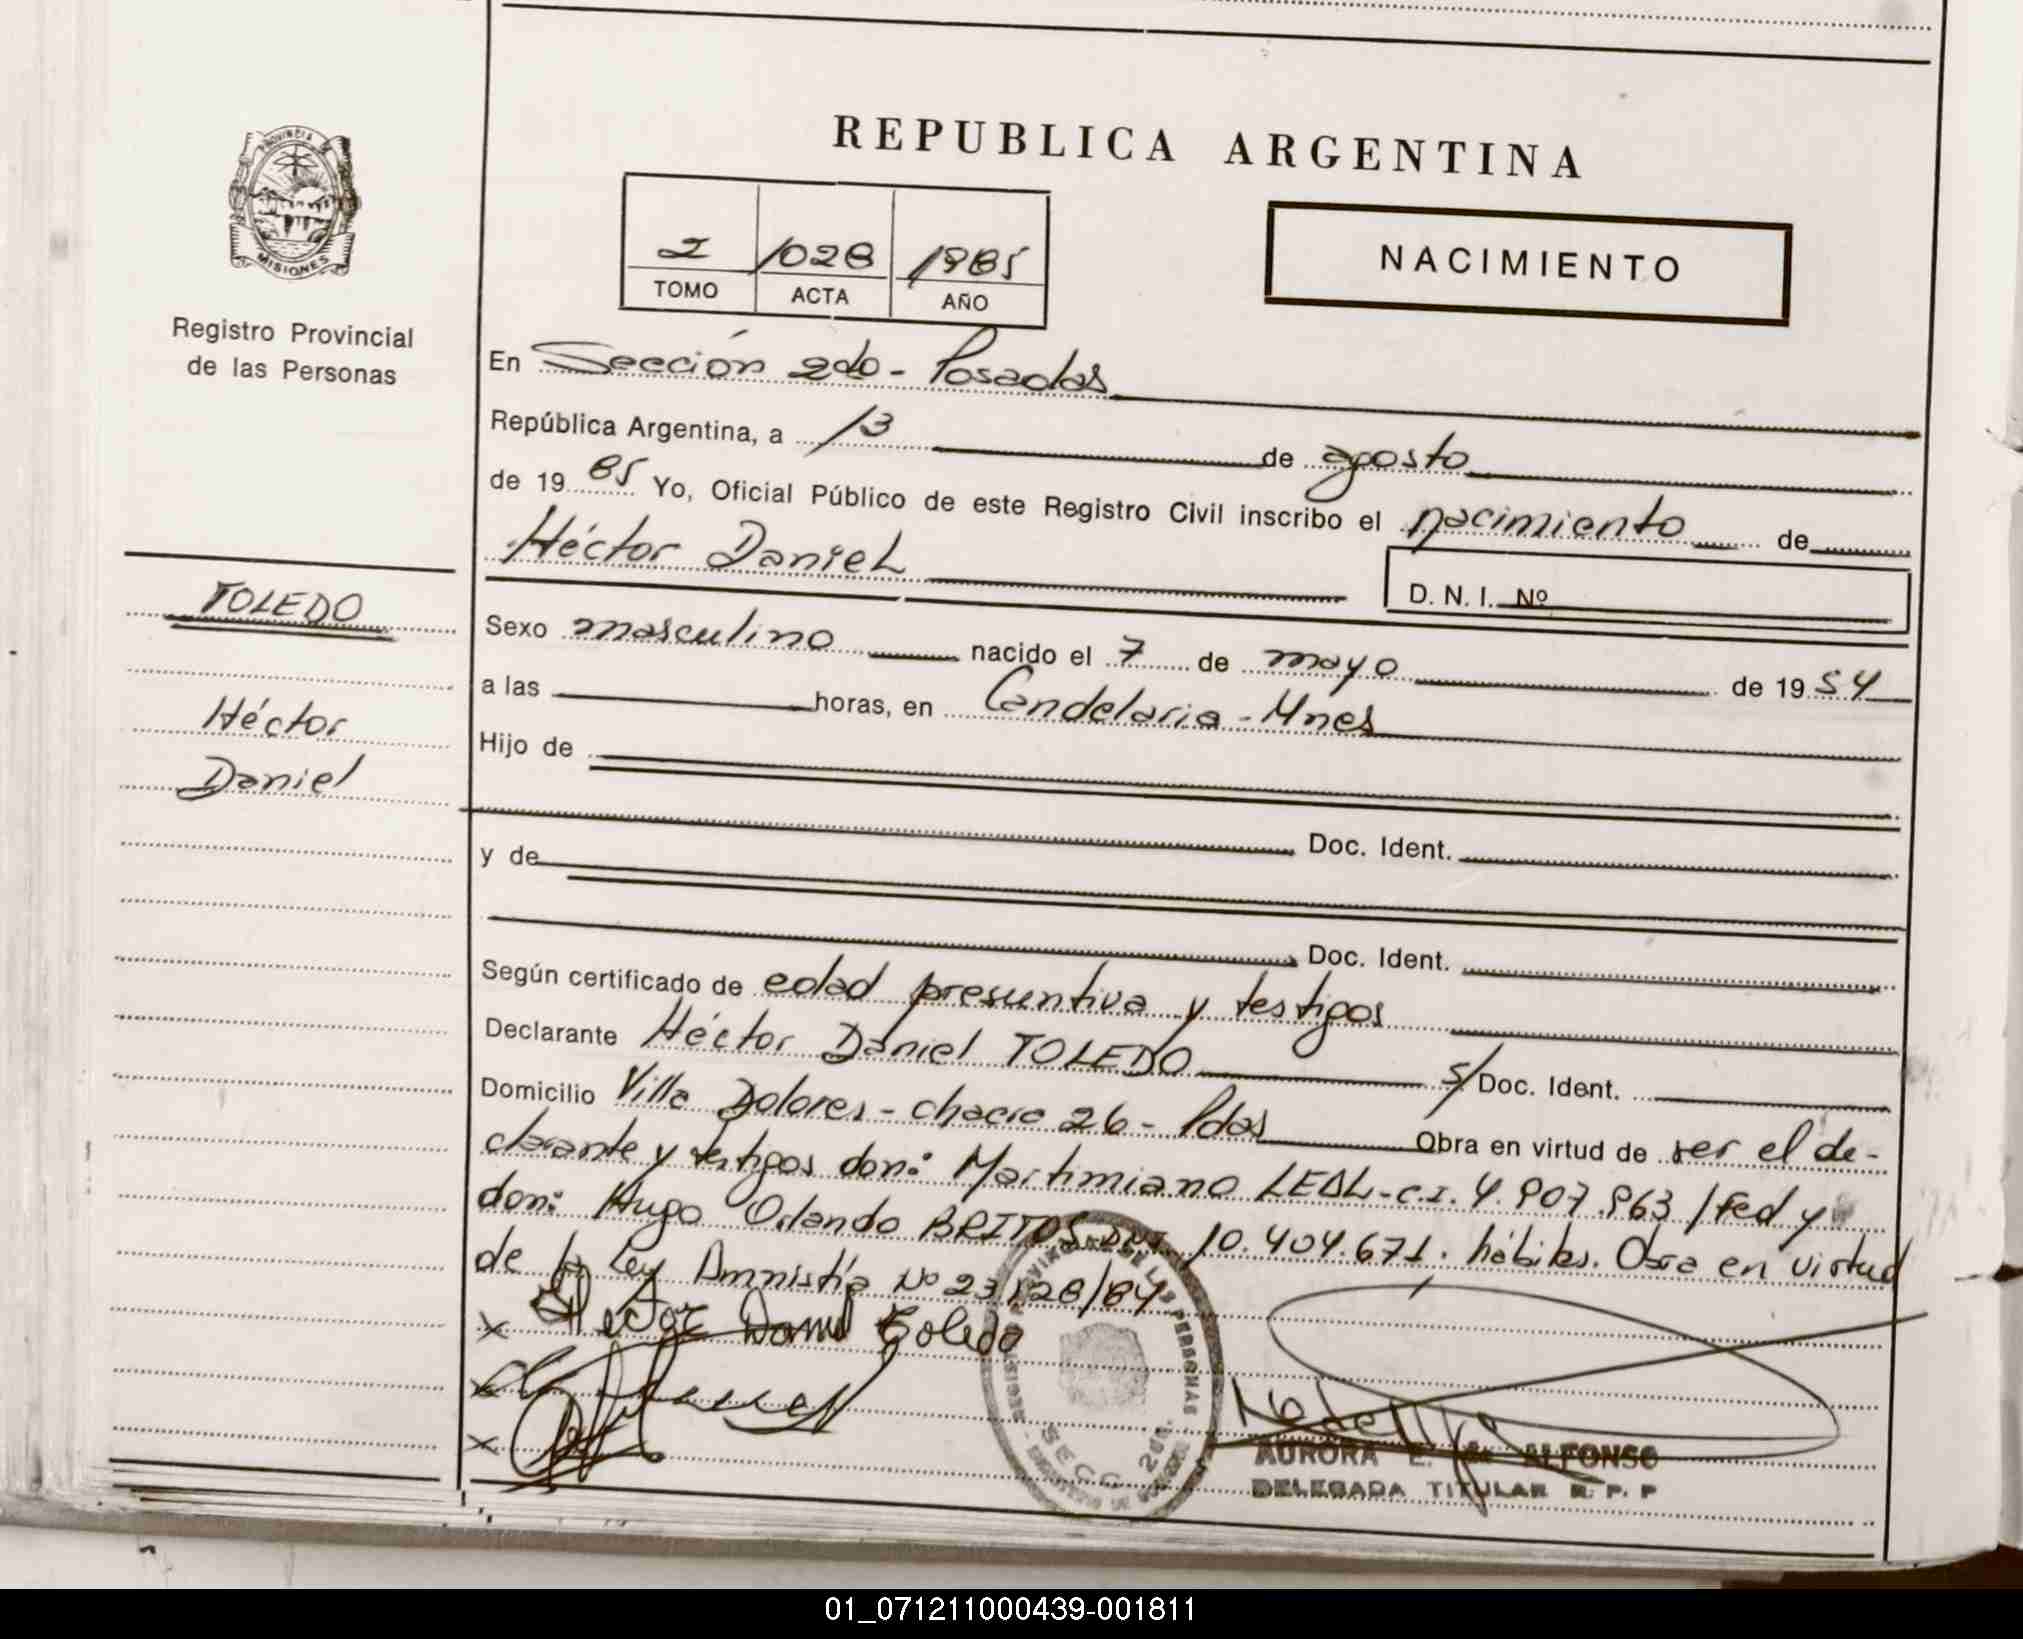 REPUBLICA ARGENTINA
PROVINCIA DE
MISIONES
Registro Provincial
de las Personas
I 1028 1985
TOMO ACTA AÑO
NACIMIENTO
En Sección 2do - Posadas
República Argentina, a 13 de agosto
de 19 85 Yo, Oficial Público de este Registro Civil inscribo el nacimiento de
Héctor Daniel
D. N. I. Nº
TOLEDO
Héctor
Daniel
Sexo masculino nacido el 7 de mayo de 19 54
a las horas, en Candelaria - Mnes
Hijo de
Doc. Ident.
y de
Doc. Ident.
Según certificado de edad presuntiva y testigos
Declarante Héctor Daniel TOLEDO S/ Doc. Ident.
Domicilio Villa Dolores - chacra 26 - Pdas Obra en virtud de ser el de-
clarante y testigos don: Martimiano LEAL - C.I. 4.907.963 / Fed y
don: Hugo Orlando BRITOS DNI 10.404.671. hábiles. Obra en virtud
de la Ley Amnistía Nº 23128/84
x Hector Daniel Toledo
x
x
SECC. 2da.
AURORA E. de ALFONSO
DELEGADA TITULAR R. P. P
01_071211000439-001811